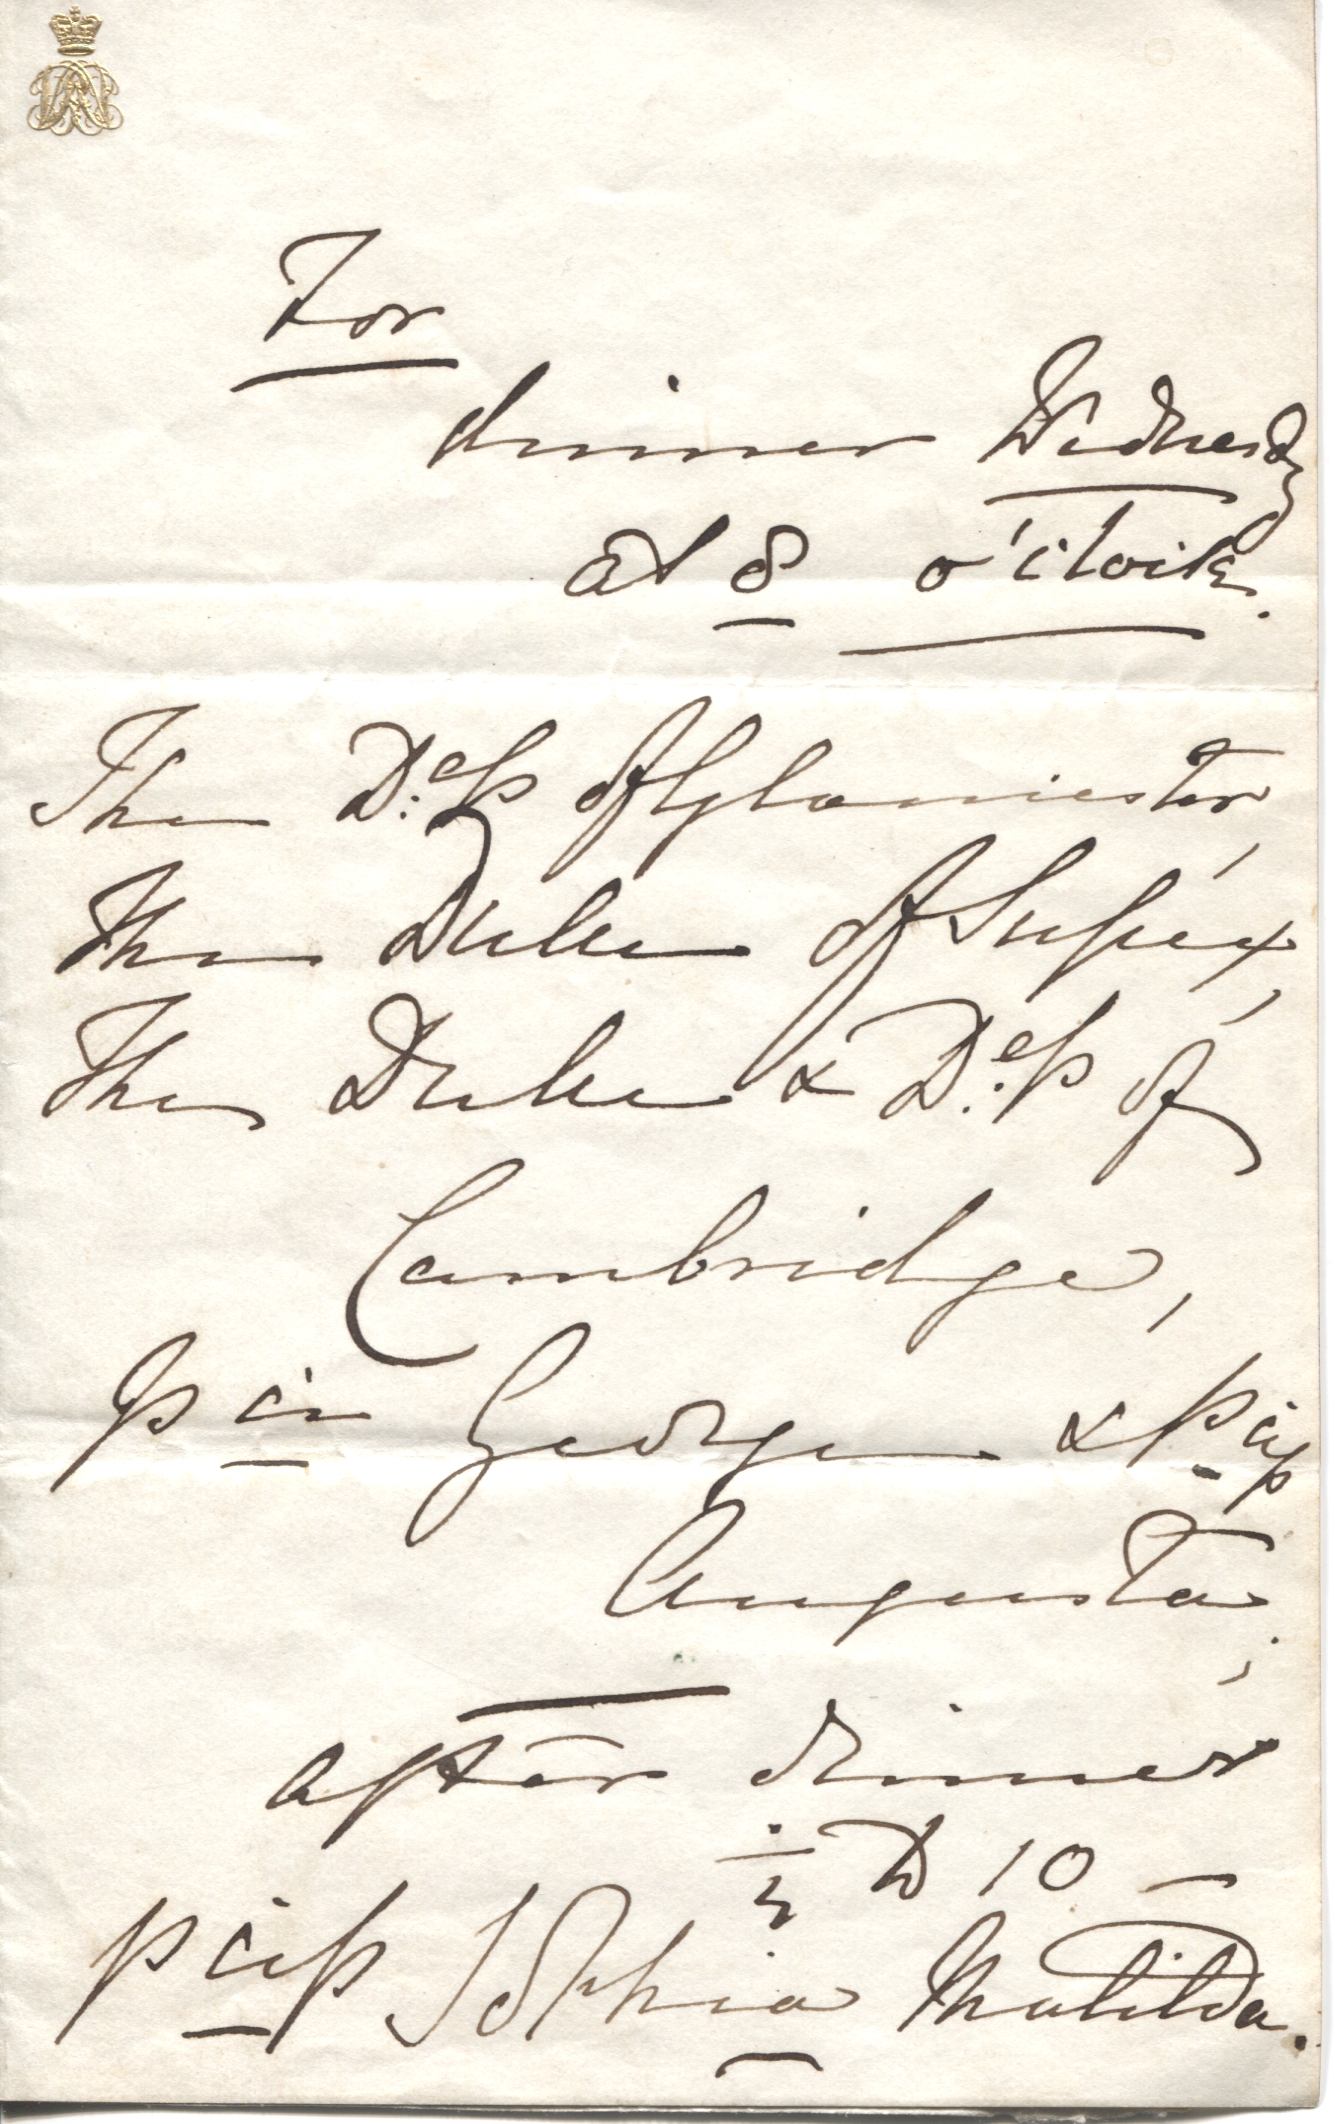 For
dinner Wednesdy
at 8 o'clock.
The D:ess of Gloucester,
The Duke of Sussex,
The Duke & D:ess of
Cambridge,
Pce George & Pcess
Augusta;
after dinner
½ p 10 —
Pcess Sophia Matilda.